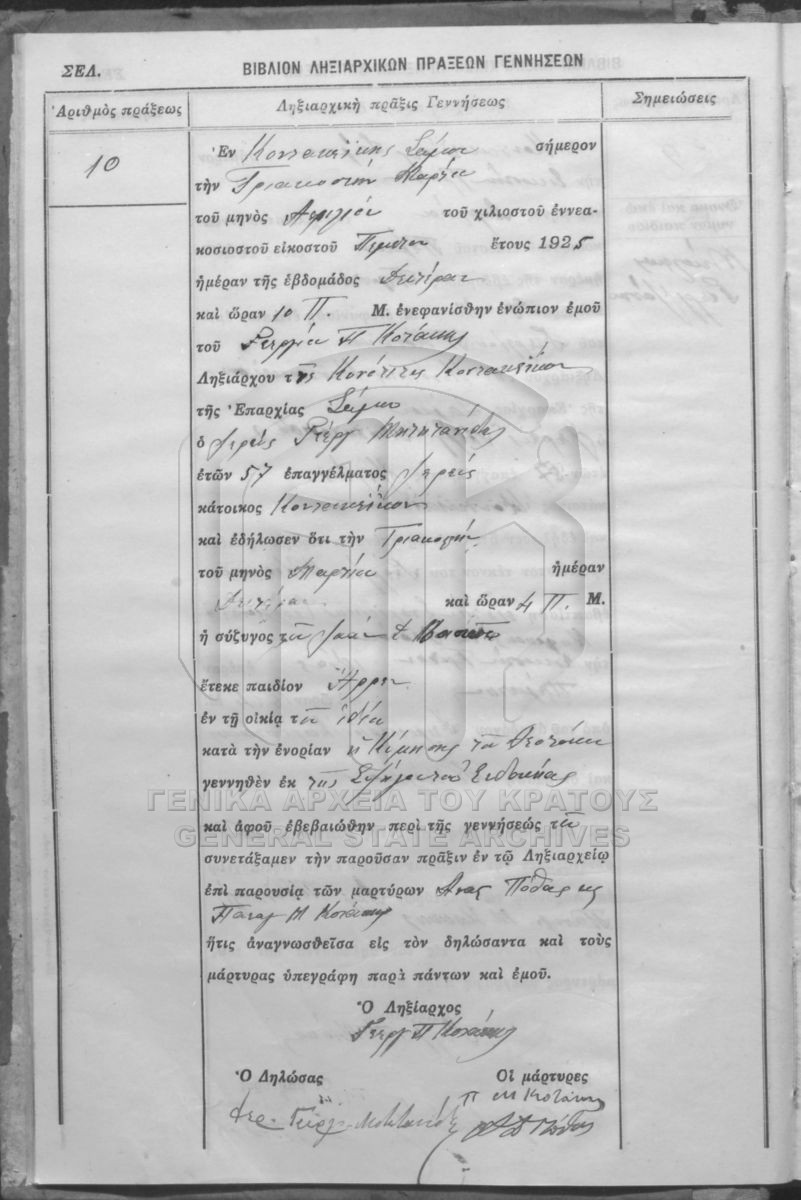 ΣΕΛ.
ΒΙΒΛΙΟΝ ΛΗΞΙΑΡΧΙΚΩΝ ΠΡΑΞΕΩΝ ΓΕΝΝΗΣΕΩΝ
Ἀριθμὸς πράξεως
Ληξιαρχικὴ πρᾶξις Γεννήσεως
Σημειώσεις
10
Ἐν Κοντακεΐκης Σάμου σήμερον
τὴν Τριακοστὴν
τοῦ μηνὸς τοῦ χιλιοστοῦ ἐννεα-
κοσιοστοῦ εἰκοστοῦ Πέμπτου ἔτους 1925
ἡμέραν τῆς ἑβδομάδος Δευτέραν
καὶ ὥραν 10 Π. Μ. ἐνεφανίσθην ἐνώπιον ἐμοῦ
τοῦ Γεεργίου Π Κοτάκης
Ληξιάρχου τῆς Κοινότητος Κοντακεΐκων
τῆς Ἐπαρχίας Σάμου
ὁ Ἱερεὺς Γεέργ
ἐτῶν 57 ἐπαγγέλματος Ἱερεύς
κάτοικος Κοντακεΐκων
καὶ ἐδήλωσεν ὅτι τὴν Τριακοστὴν
τοῦ μηνὸς Μαρτίου ἡμέραν
Δευτέραν καὶ ὥραν 4 Π. Μ.
ἡ σύζυγος τοῦ
ἔτεκε παιδίον Ἄρρεν
ἐν τῇ οἰκίᾳ τοῦ ἰδίου
κατὰ τὴν ἐνορίαν ἡ Κοίμησης τοῦ Θεοτόκου
γεννηθὲν ἐκ τῆς
ΓΕΝΙΚΑ ΑΡΧΕΙΑ ΤΟΥ ΚΡΑΤΟΥΣ
καὶ ἀφοῦ ἐβεβαιώθην περὶ τῆς γεννήσεώς του
GENERAL STATE ARCHIVES
συνετάξαμεν τὴν παροῦσαν πρᾶξιν ἐν τῷ Ληξιαρχείῳ
ἐπὶ παρουσίᾳ τῶν μαρτύρων
Παναγ Μ Κοτάκης
ἥτις ἀναγνωσθεῖσα εἰς τὸν δηλώσαντα καὶ τοὺς
μάρτυρας ὑπεγράφη παρὰ πάντων καὶ ἐμοῦ.
Ὁ Ληξίαρχος
Γεεργ Π Κοτάκης
Ὁ Δηλώσας
Οἱ μάρτυρες
Π Μ Κοτάκης
Ἱερ. Γεώργ.